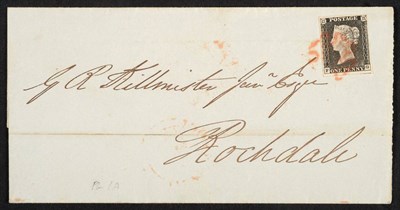 POSTAGE
ONE PENNY
G R Killmister Junr Esqre
Rochdale
Pl 1A